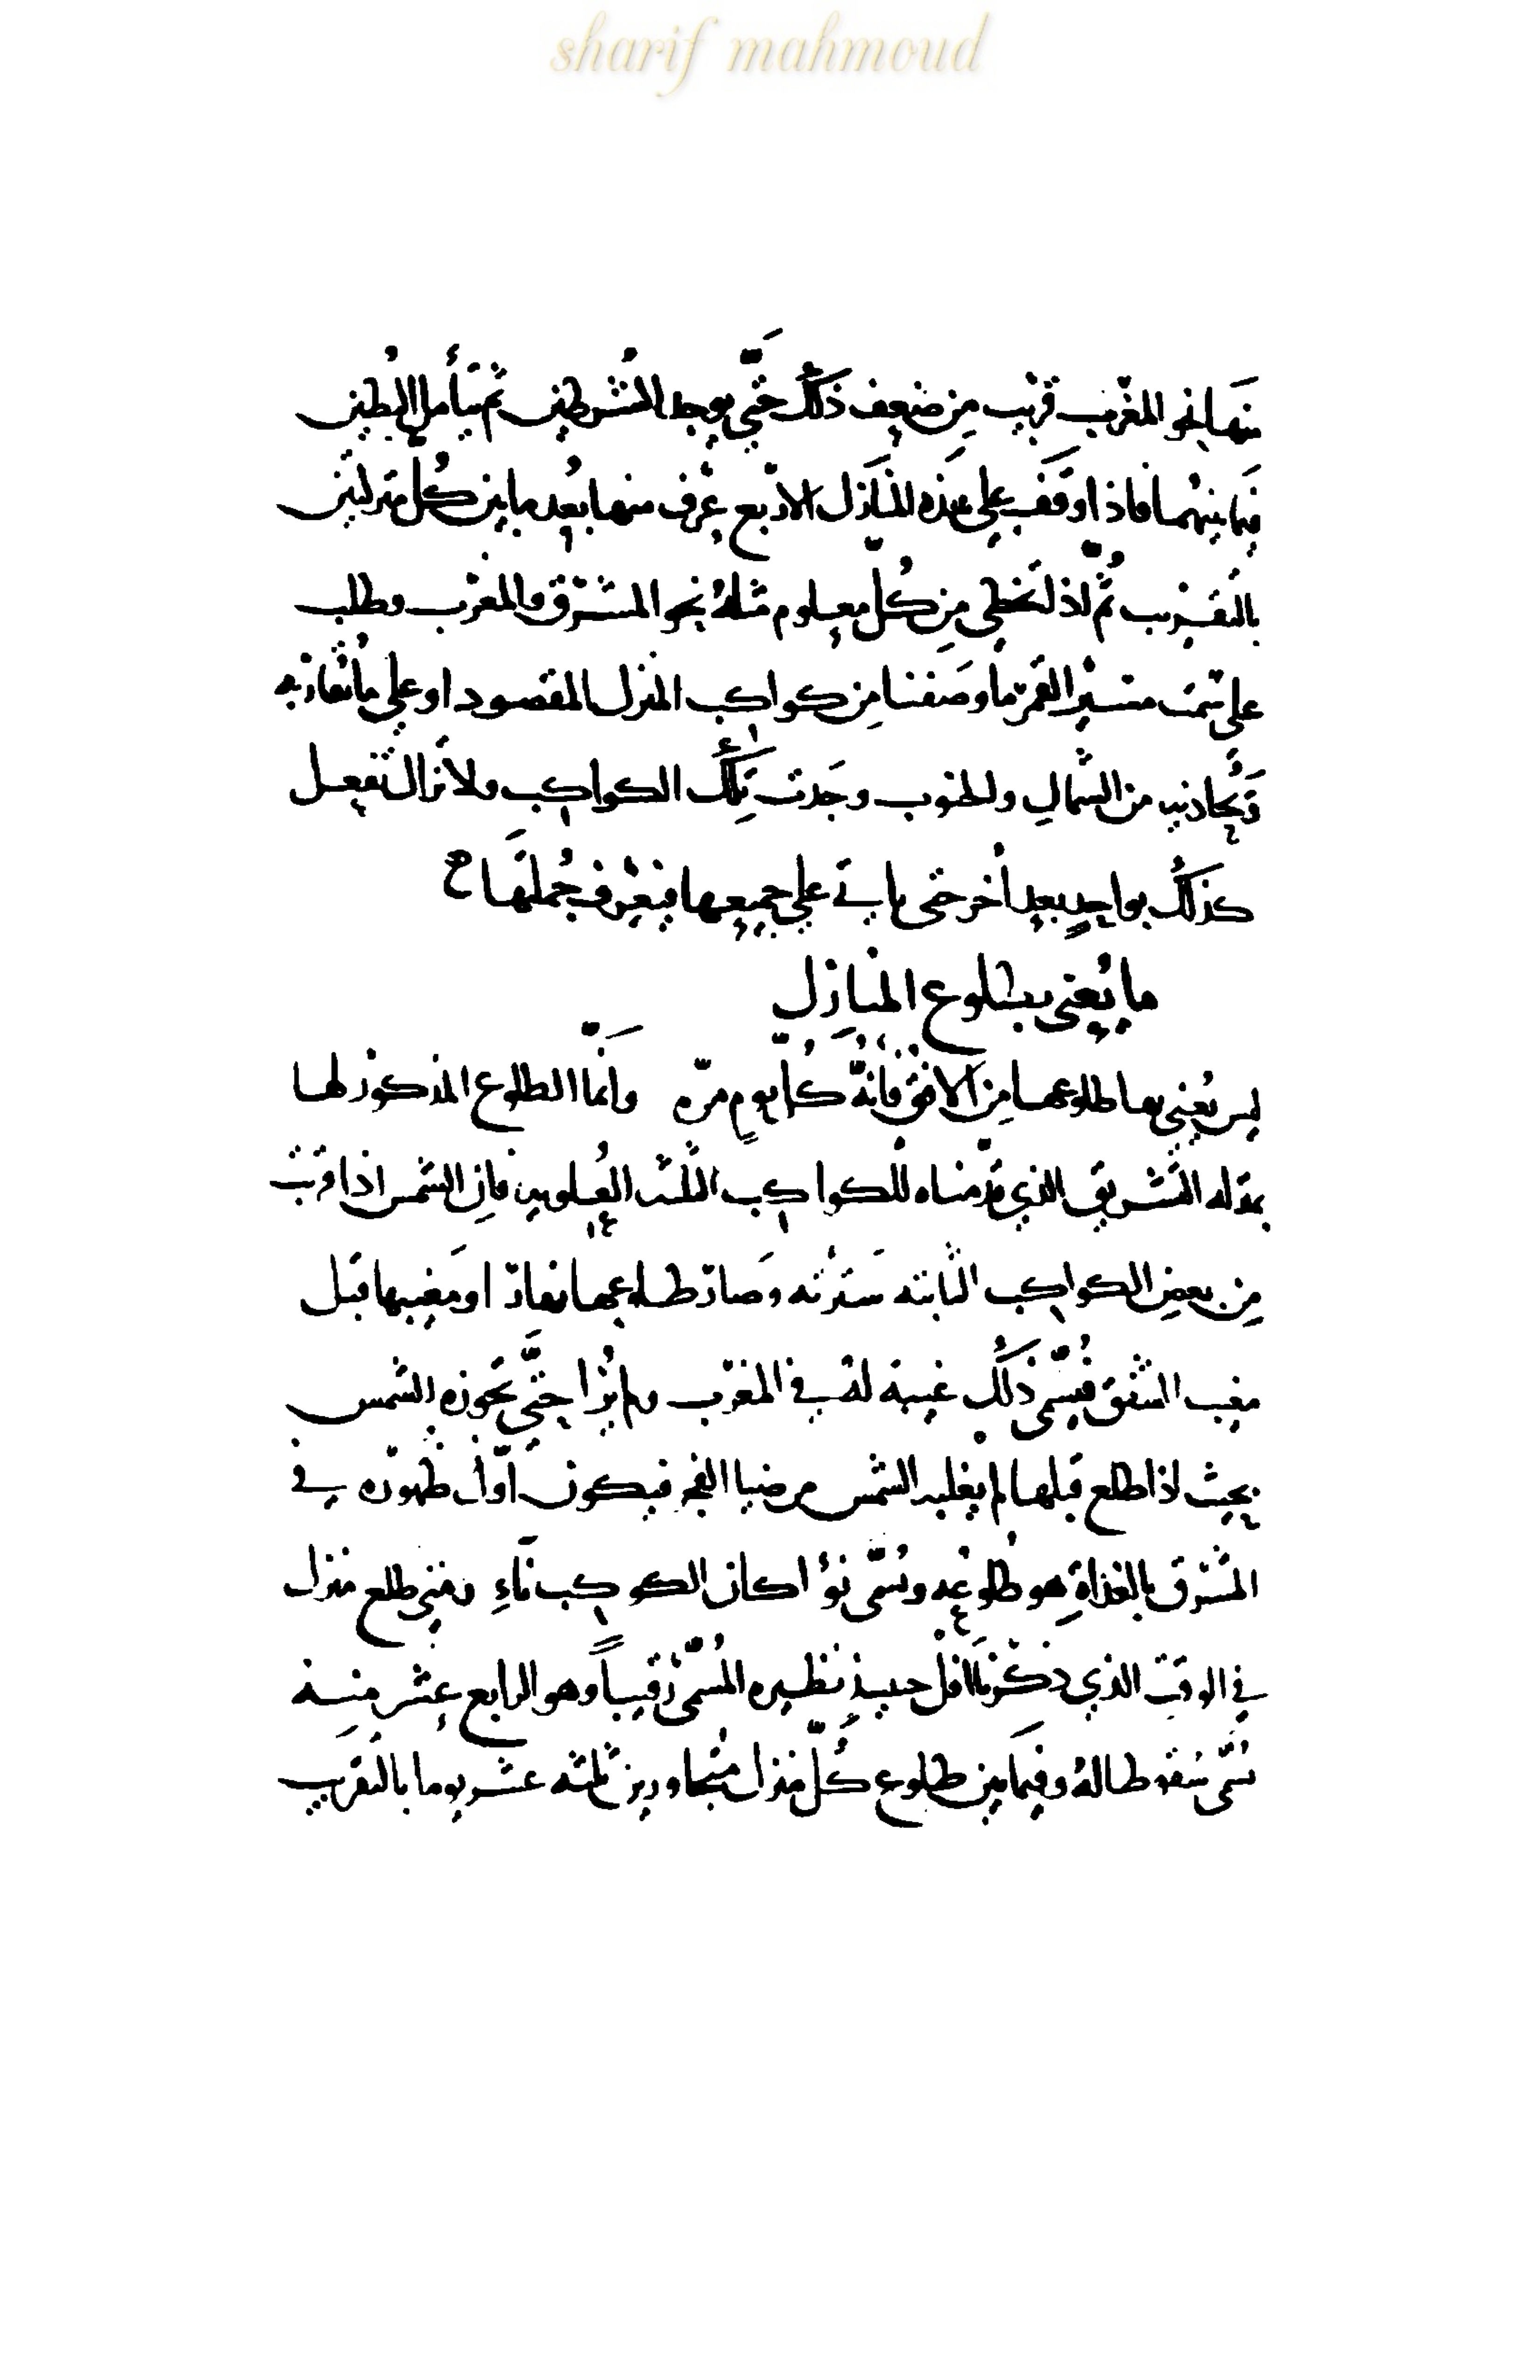 sharif mahmoud
منها نحو المغرب قريب من ضعف ذلك حتى يوجد الشرطين ثم يتأمل البطين
فيما بينهما فاذا وقف على هذه المنازل الاربع عرف منها بعد ما بين كل منزلين
بالتقريب ثم اذا تخطى من كل معلوم مثله نحو المشرق والمغرب وطلب
على سمت مسير القمر ما وصفنا من كواكب المنزل المقصود او على ما تقارنه
وتحاذيه من الشمال والجنوب وجدت تلك الكواكب ولا تزال تفعل
كذلك بواحد بعد آخر حتى ياتي على جميعها فيعرف جملتها
ما يعنى بطلوع المنازل
ليس يعنى بها طلوعها من الافق فانه كل يوم مره وانما الطلوع المذكور لها
بمنزله التشريق الذي قدمناه للكواكب الثلثه العلويه فان الشمس اذا قربت
من بعض الكواكب الثابته سترته وصار طلوعها نهارا ومغيبها قبل
مغيب الشفق فيسمى ذلك غيبة له في المغرب ولم يُرَ حتى تجوزه الشمس
بحيث اذا طلع قبلها لم يغلبه الشمس من ضيا الفجر فيكون اول ظهوره في
المشرق بالغداة هو طلوعه وتسمى نوأ كان الكوكب ناء ومتى طلع منزل
في الوقت الذي ذكرناه افل حينيذ نظيره المسمى رقيباً وهو الرابع عشر منه
سمي سقوطا له وفيما بين طلوع كل منزل متجاورين ثلثه عشر يوما بالتقريب